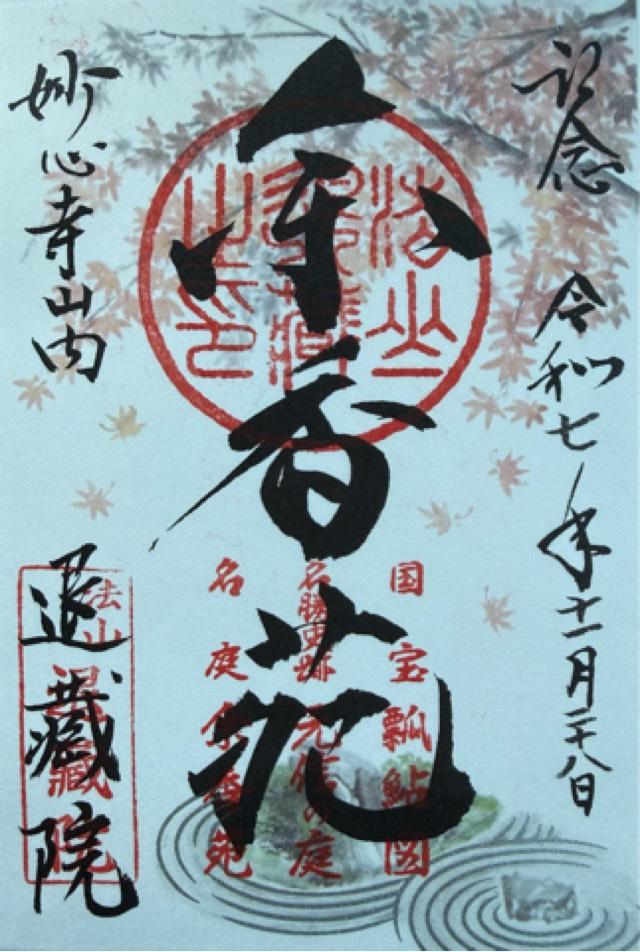 記念
令和七年十一月二十八日
余香苑
国宝瓢鮎図
名勝史跡元信の庭
名庭余香苑
妙心寺山内
退藏院
法山
退藏院